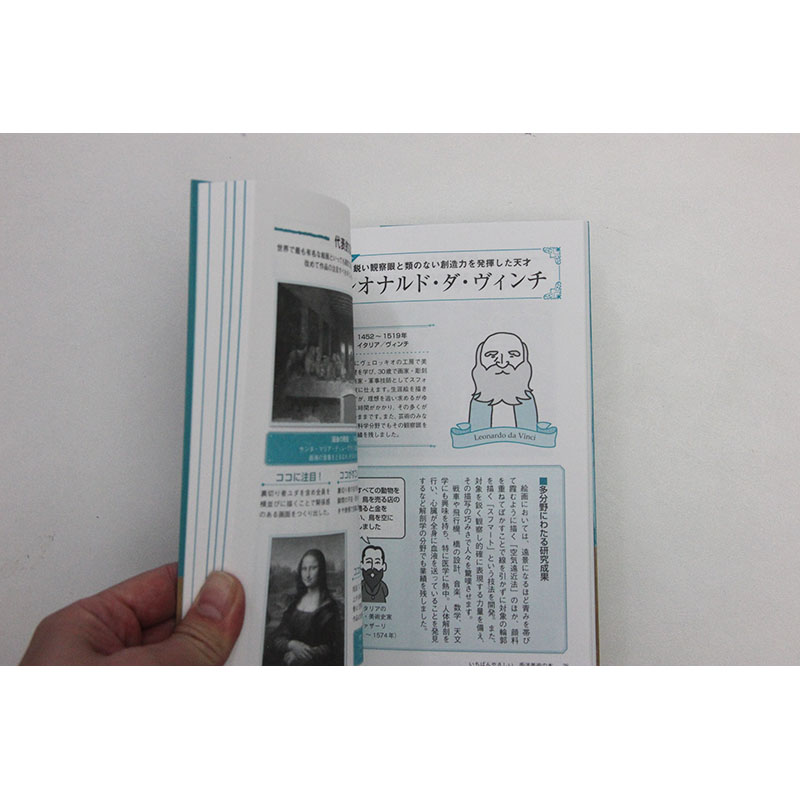 世界で最も有名な絵画といっても過
改めて作品の注目
ココに注目！
裏切り者ユダを含め全員を
横並びに描くことで緊張感
のある画面をつくり出した。
鋭い観察眼と類のない創造力を発揮した天才
オナルド・ダ・ヴィンチ
1452〜1519年
イタリア／ヴィンチ
にヴェロッキオの工房で美
を学び、30歳で画家・彫刻
家・軍事技師としてスフォ
に仕えます。生涯絵を描き
が、理想を追い求めるがゆ
時間がかかり、その多くが
まです。また、芸術のみな
科学分野でもその観察眼を
績を残しました。
Leonardo da Vinci
■多分野にわたる研究成果
絵画においては、遠景になるほど青みを帯び
て霞むように描く「空気遠近法」のほか、顔料
を重ねてぼかすことで線を引かずに対象の輪郭
を描く「スフマート」という技法を開発。また、
対象を鋭く観察し的確に表現する力量を備え、
その描写の巧みさで人々を驚嘆させます。
戦車や飛行機、橋の設計、音楽、数学、天文
学にも興味を持ち、特に医学に熱中。人体解剖を
行い、心臓が全身に血液を送っていることを発見
するなど解剖学の分野でも業績を残しました。
すべての動物を
鳥を売る店の
ると金を
、鳥を空に
しました
タリアの
・美術史家
ァザーリ
〜1574年）
いちばんやさしい 西洋美術の本